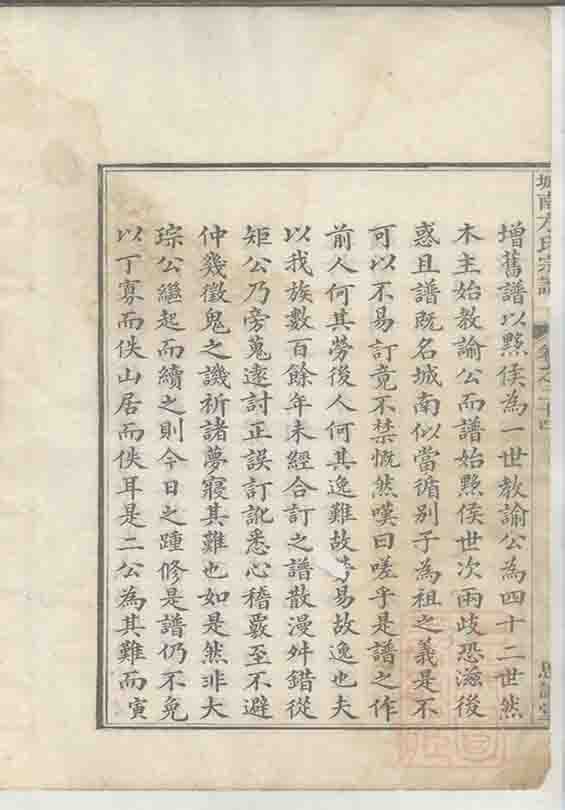 城南方氏宗譜
增舊譜以黟侯為一世教諭公為四十二世然
木主始教諭公而譜始黟侯世次兩歧恐滋後
惑且譜既名城南似當循別子為祖之義是不
可以不易訂竟不禁慨然嘆曰嗟乎是譜之作
前人何其勞後人何其逸難故勞易故逸也夫
以我族數百餘年未經合訂之譜散漫舛錯從
矩公乃旁蒐遠討正誤訂訛悉心稽覈至不避
仲幾徵鬼之譏祈諸夢寐其難也如是然非大
琮公繼起而續之則今日之踵修是譜仍不免
以丁寡而佚山居而佚耳是二公為其難而寅